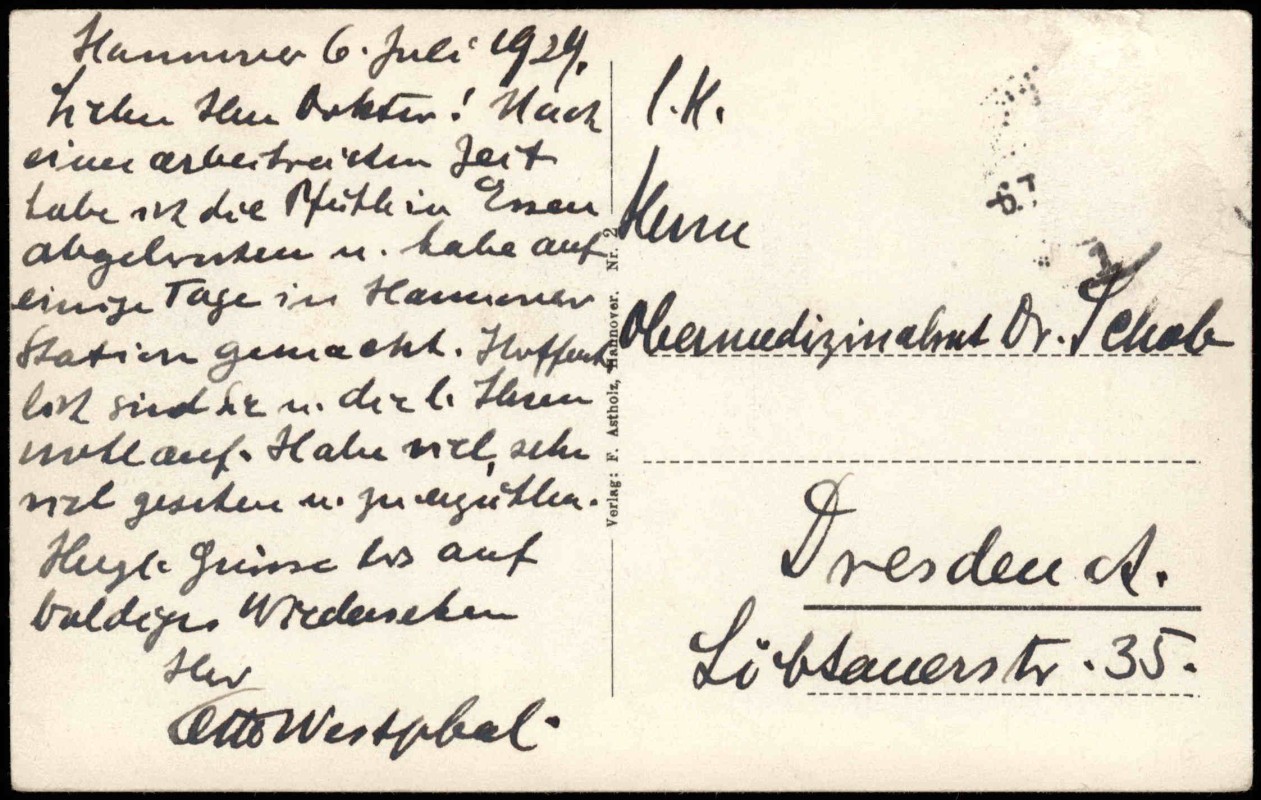 Hannover 6. Juli 1929.
Lieber Herr Doktor! Nach
einer arbeitreichen Zeit
habe ich die in Essen
abgebrochen u. habe auf
einige Tage in Hannover
Station gemacht. Hoffent
lich sind Sie u. die l. Ihren
wohlauf. Habe viel, sehr
viel gesehen u. zu erzählen.
Herzl. Grüsse bis auf
baldiges Wiedersehen
Ihr
Otto Westphal.
Verlag: F. Astholz, Hannover. Nr. 2
Herrn
Obermedizinalrat Dr. Schob
Dresden A.
Löbtauerstr. 35.